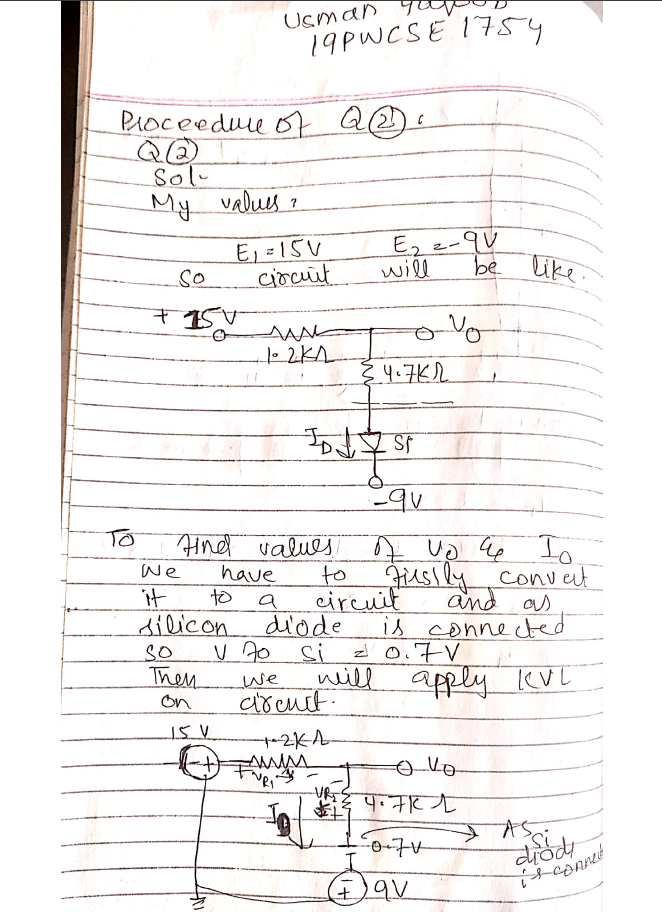 Usman
19PWCSE 1754
Proceedure of Q(2) :
Q(2)
Sol-
My values :
E1 = 15V E2 = -9V
so circuit will be like.
+ 15V Vo
1.2KΩ
4.7KΩ
ID Si
-9V
To find values of Vo & ID
we have to firstly convert
it to a circuit and as
silicon diode is connected
so V fo Si = 0.7V
Then we will apply KVL
on circuit.
15 V 1.2KΩ
- + + VR1 - Vo
VR2 - + 4.7KΩ
ID 0.7V As Si
diode
is connec
+ 9V